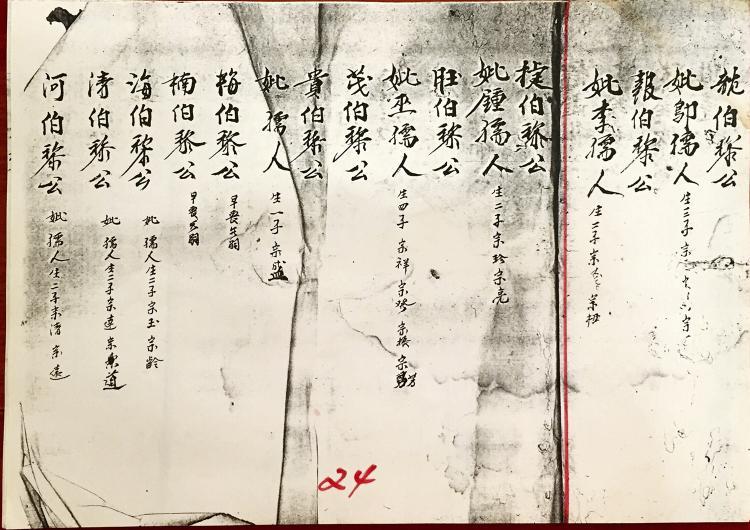 伯黎公
妣邬孺人 生三子宗
報伯黎公
妣李孺人 生二子宗
伯黎公
妣鍾孺人 生二子宗珍宗亮
旺伯黎公
妣巫孺人 生四子宗祥宗 宗振宗芳
茂伯黎公
貴伯黎公
妣孺人 生一子宗盛
梅伯黎公 早喪
楠伯黎公 早喪
海伯黎公 妣孺人生二子宗玉宗齡
清伯黎公 妣孺人生二子宗達宗道
河伯黎公 妣孺人生二子宗清宗遠
24